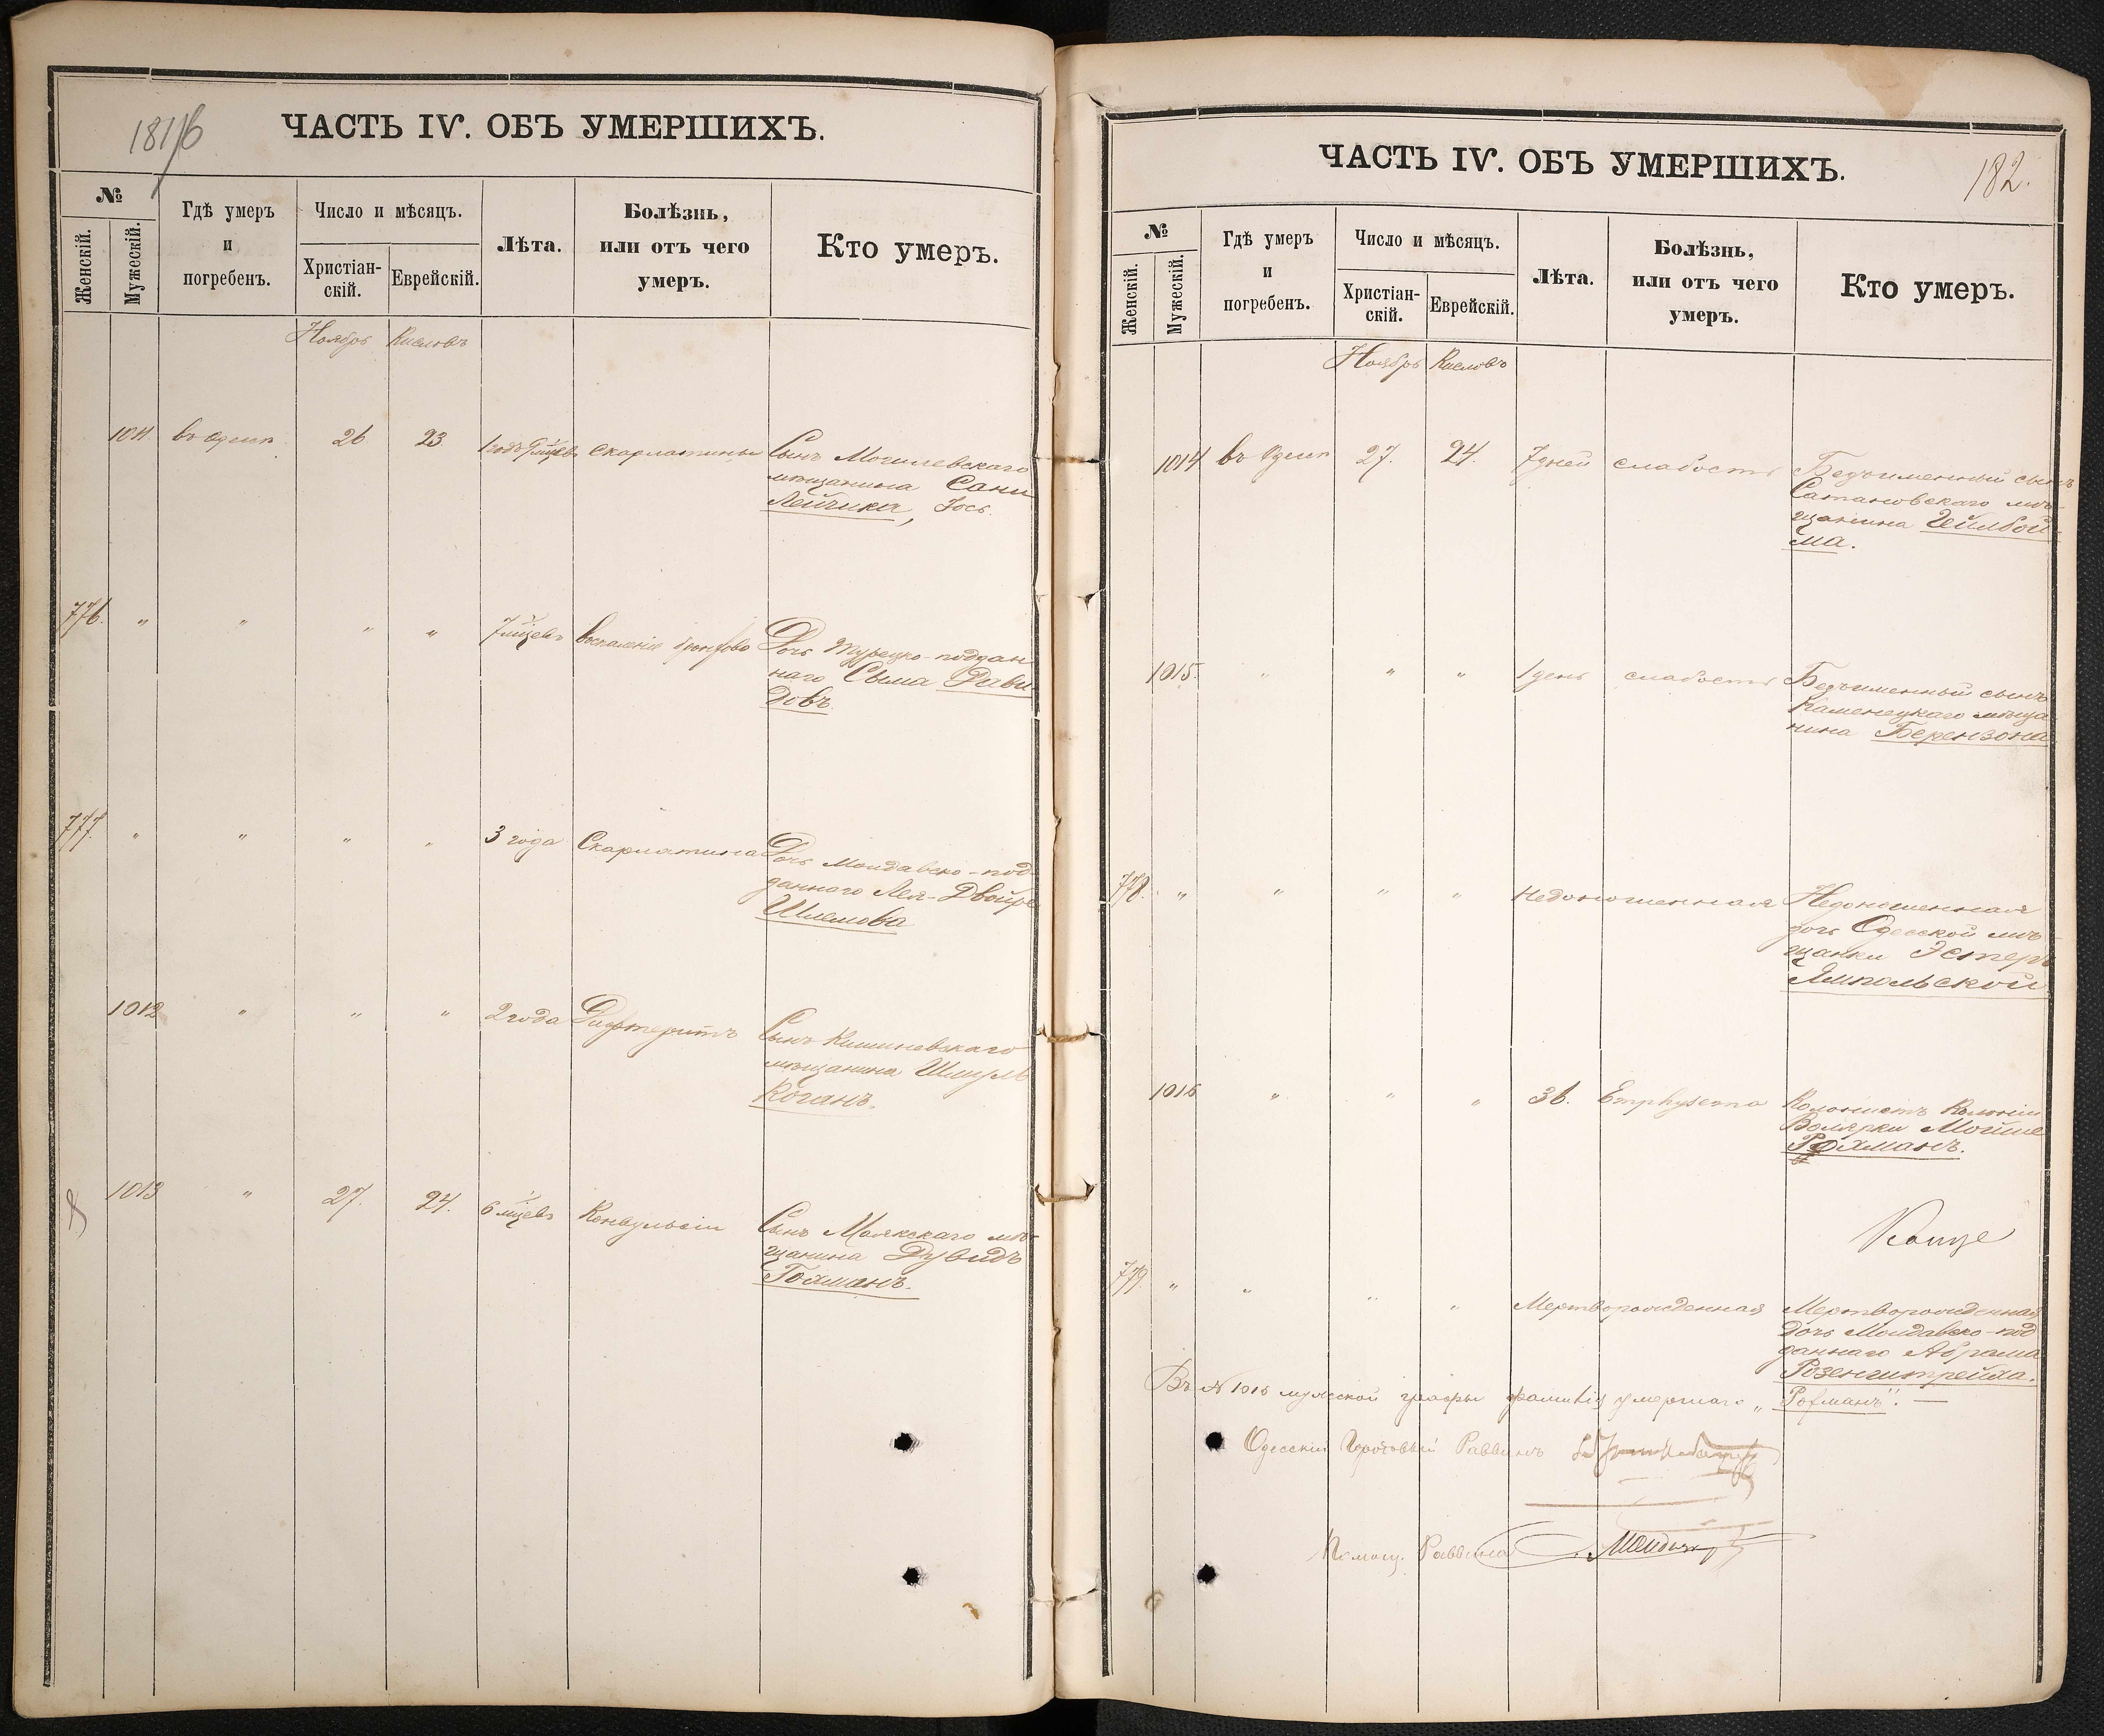 181/б
ЧАСТЬ IV. ОБЪ УМЕРШИХЪ.
№
Женскій.
Мужескій.
Гдѣ умеръ
и
погребенъ.
Число и мѣсяцъ.
Христіан-
скій.
Еврейскій.
Лѣта.
Болѣзнь,
или отъ чего
умеръ.
Кто умеръ.
Ноябрь Кислевъ
1011 въ Одессѣ 26 23 1 годъ 9 мцевъ скарлатины Сынъ Могилевскаго
мѣщанина Сани
Лейчика, Іось.
776. " " " " 7 мцевъ воспаленіе бронховъ Дочь Турецко-поддан
наго Сыма Дави-
довъ.
777. " " " " 3 года Скарлатина Дочь Молдавско-под
даннаго Лея-Двойре
Шлемова
1012 " " " 2 года Дифтеритъ Сынъ Кишиневскаго
мѣщанина Шмуль
Коганъ.
1013 " 27. 24. 6 мцевъ Конвульсіи Сынъ Маякскаго мѣ-
щанина Дувидъ
Гохманъ.
182.
ЧАСТЬ IV. ОБЪ УМЕРШИХЪ.
№
Женскій.
Мужескій.
Гдѣ умеръ
и
погребенъ.
Число и мѣсяцъ.
Христіан-
скій.
Еврейскій.
Лѣта.
Болѣзнь,
или отъ чего
умеръ.
Кто умеръ.
Ноябрь Кислевъ
1014 въ Одессѣ 27. 24. 7 дней слабость Безъименный сынъ
Сатановскаго мѣ-
щанина Цейлбой-
ма.
1015. " " " 1 день слабость Безъименный сынъ
Каменецкаго мѣща
нина Берензона
778. " " " " Недоношенная Недоношенная
дочь Одесской мѣ-
щанки Эстеръ
Ямпольской
1016 " " " 36. Emphysema Колонистъ Колоніи
Волярки Мойше
Рохманъ.
779. " " " " Мертворожденная Мертворожденная
дочь Молдавско-под
даннаго Абрама
Розенштрейха.
Въ № 1016 мужской графы фамилія умершаго „Рохманъ". —
Одесскій Городовый Раввинъ
Помощ. Раввина